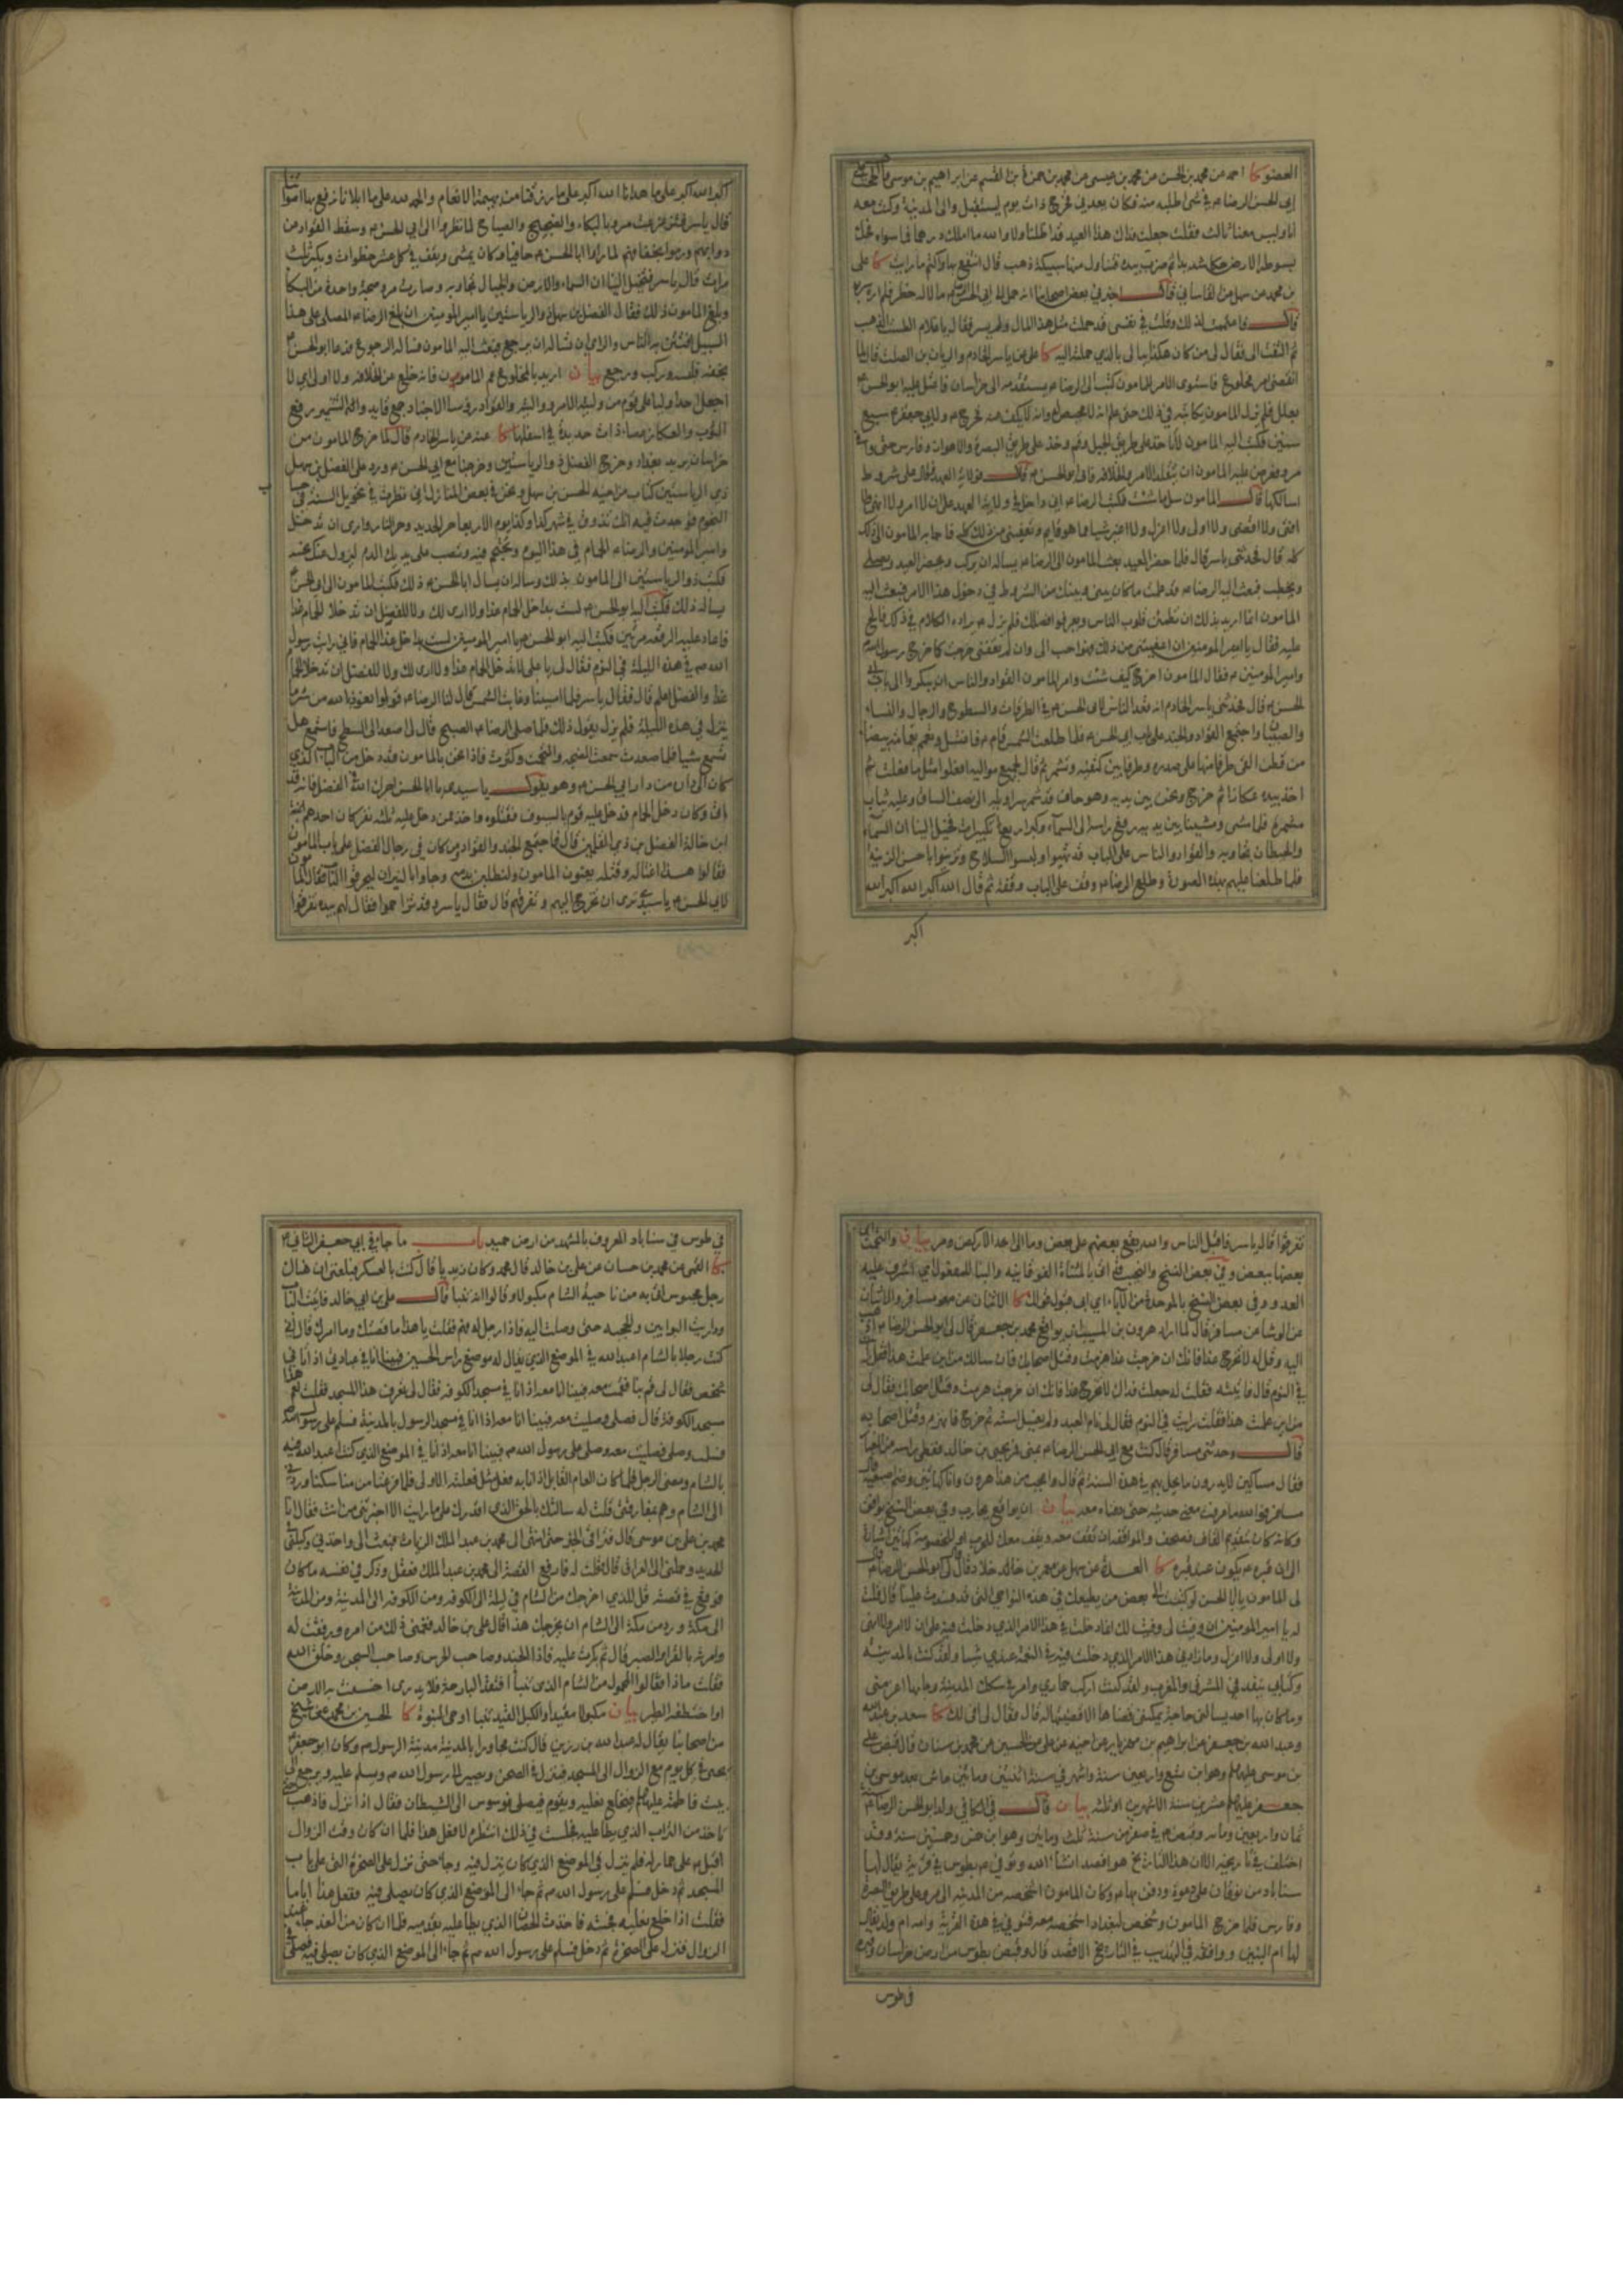 العضو كا احمد عن محمد بن الحسن عن محمد بن عيسى عن محمد بن حمزة بن القسم عن ابراهيم بن موسى قال الححت على
ابي الحسن الرضا م في شئ اطلبه منه فكان يعدني فخرج ذات يوم ليستقبل والى المدينة وكنت معه
انا وليس معنا ثالث فقلت جعلت فداك هذا العيد قد اظلنا ولا والله ما املك درهما فما سواه فحك
بسوطه الارض حكا شديدا ثم ضرب بيده فتناول منها سبيكة ذهب ثم قال انتفع بها واكتم ما رايت كا على
بن محمد عن سهل عن القاساني قال اخبرني بعض اصحابنا انه حمل الى ابي الحسن الرضا م مالا له خطر فلم اره سر به
قال فاغتممت لذلك وقلت في نفسي قد حملت مثل هذا المال ولم يسر به فقال يا غلام الطست
ثم التفت الى فقال لى من كان هكذا يبالى بالذي حملته اليه كا على عن ياسر الخادم والريان بن الصلت قال لما
انقضى امر المخلوع واستوى الامر للمامون كتب الى الرضا م يستقدمه الى خراسان فاعتل عليه ابو الحسن م
بعلل فلم يزل المامون يكاتبه في ذلك حتى علم انه لا محيص له وانه لا يكف عنه فخرج م ولابي جعفر م سبع
سنين فكتب اليه المامون لا تاخذ على طريق الجبل وقم وخذ على طريق البصرة والاهواز وفارس حتى وافى
مرو فعرض عليه المامون ان يتقلد الامر والخلافة فابى ابو الحسن م قال فولاية العهد فقال على شروط
اسالكها قال المامون سل ما شئت فكتب الرضا م اني داخل في ولاية العهد على ان لا امر ولا انهى ولا
افتى ولا اقضى ولا اولى ولا اعزل ولا اغير شيا مما هو قايم وتعفيني من ذلك كله فاجابه المامون الى ذلك
كله قال فحدثني ياسر قال فلما حضر العيد بعث المامون الى الرضا م يساله ان يركب ويحضر العيد ويصلي
ويخطب فبعث اليه الرضا م قد علمت ما كان بيني وبينك من الشروط في دخول هذا الامر فبعث اليه
المامون انما اريد بذلك ان تطمئن قلوب الناس ويعرفوا فضلك فلم يزل م يراده الكلام في ذلك فالح
عليه فقال يا امير المومنين ان اعفيتني من ذلك فهو احب الى وان لم تعفني خرجت كما خرج رسول الله
وامير المومنين م فقال المامون اخرج كيف شئت وامر المامون القواد والناس ان يبكروا الى باب ابي
الحسن م قال فحدثني ياسر الخادم انه قعد الناس لابي الحسن م في الطرقات والسطوح والرجال والنساء
والصبيان واجتمع القواد والجند على باب ابي الحسن م فلما طلعت الشمس قام م فاغتسل وتعمم بعمامة بيضاء
من قطن القى طرفا منها على صدره وطرفا بين كتفيه وتشمر ثم قال لجميع مواليه افعلوا مثل ما فعلت ثم
اخذ بيده عكازا ثم خرج ونحن بين يديه وهو حاف قد شمر سراويله الى نصف الساق وعليه ثياب
مشمرة فلما مشى ومشينا بين يديه رفع راسه الى السماء وكبر اربع تكبيرات فخيل الينا ان السماء
والحيطان تجاوبه والقواد والناس على الباب قد تهيوا ولبسوا السلاح وتزينوا باحسن الزينة
فلما طلعنا عليهم بهذه الصورة وطلع الرضا م وقف على الباب وقفة ثم قال الله اكبر الله اكبر الله
اكبر
اكبر الله اكبر على ما هدانا الله اكبر على ما رزقنا من بهيمة الانعام والحمد لله على ما ابلانا نرفع بها اصواتنا
قال ياسر فتزعزعت مرو بالبكاء والضجيج والصياح لما نظروا الى ابي الحسن م وسقط القواد من
دوابهم ورموا بخفافهم لما راوا ابا الحسن م حافيا وكان يمشى ويقف في كل عشر خطوات ويكبر ثلث
مرات قال ياسر فتخيل الينا ان السماء والارض والجبال تجاوبه وصارت مرو ضجة واحدة من البكا
وبلغ المامون ذلك فقال الفضل بن سهل ذو الرياستين يا امير المومنين ان بلغ الرضا م المصلى على هذا
السبيل افتتن به الناس والراى ان تساله ان يرجع فبعث اليه المامون فساله الرجوع فدعا ابو الحسن م
بخفه فلبسه وركب ورجع بيان اريد بالمخلوع عم المامون فانه خلع عن الخلافة ولا اولى اي لا
اجعل احدا واليا على قوم من وليته الامر والقواد روسا الاجناد جمع قايد والتشمير رفع
الثوب والعكاز عصاء ذات حديدة في اسفلها كا عنه عن ياسر الخادم قال لما خرج المامون من
خراسان يريد بغداد وخرج الفضل ذو الرياستين وخرجنا مع ابي الحسن م ورد على الفضل بن سهل
ذى الرياستين كتاب من اخيه الحسن بن سهل ونحن في بعض المنازل اني نظرت في تحويل السنة في حساب
النجوم فوجدت فيه انك تذوق في شهر كذا وكذا يوم الاربعا حر الحديد وحر النار وارى ان تدخل
وامير المومنين والرضا م الحمام في هذا اليوم وتحتجم فيه وتصب على يديك الدم ليزول عنك نحسه
فكتب ذو الرياستين الى المامون بذلك وساله ان يسال ابا الحسن م ذلك فكتب المامون الى ابي الحسن م
يساله ذلك فكتب اليه ابو الحسن م لست بداخل الحمام غدا ولا ارى لك ولا للفضل ان تدخلا الحمام غدا
فاعاد عليه الرقعة مرتين فكتب اليه ابو الحسن م يا امير المومنين لست بداخل غدا الحمام فاني رايت رسول
الله م في هذه الليلة في النوم فقال لى يا على لا تدخل الحمام غدا ولا ارى لك ولا للفضل ان تدخلا الحمام
غدا والفضل اعلم قال فقال ياسر فلما امسينا وغابت الشمس قال لنا الرضا م قولوا نعوذ بالله من شر ما
ينزل في هذه الليلة فلم نزل نقول ذلك فلما صلى الرضا م الصبح قال لى اصعد الى السطح فاستمع هل
تسمع شيا فلما صعدت سمعت الضجة والتحمت وكثرت فاذا نحن بالمامون قد دخل من الباب الذي
كان الى داره من دار ابي الحسن م وهو يقول يا سيدى يا ابا الحسن اجرك الله في الفضل فانه قد
ابى وكان دخل الحمام فدخل عليه قوم بالسيوف فقتلوه واخذ ممن دخل عليه ثلثة نفر كان احدهم
ابن خالة الفضل بن ذي القلمين قال فاجتمع الجند والقواد ومن كان في رجال الفضل على باب المامون
فقالوا هذا اغتاله وقتله يعنون المامون ولنطلبن بدمه وجاوا بالنيران ليحرقوا الباب فقال المامون
لابي الحسن م يا سيدى ترى ان تخرج اليهم وتفرقهم قال فقال ياسر وقد تزاحموا فقال لهم بيده تفرقوا
تفرقوا قال ياسر فاقبل الناس والله يقع بعضهم على بعض وما اشار الى احد الا ركض ومر بيان والتحمت اي
بعضها ببعض وفي بعض النسخ والنحيب
العدو وفي بعض النسخ بالموحدة من الاباء اي ابى قبول قولك كا الاثنان عن معمر مسافر والاثنان
عن الوشا عن مسافر قال لما اراد هرون بن المسيب ان يواقع محمد بن جعفر قال لى ابو الحسن الرضا م اذهب
اليه وقل له لا تخرج غدا فانك ان خرجت غدا هزمت وقتل اصحابك فان سالك من اين علمت هذا فقل رايت
في النوم قال فاتيته فقلت له جعلت فداك لا تخرج غدا فانك ان خرجت هزمت وقتل اصحابك فقال لى
من اين علمت هذا فقلت رايت في النوم فقال لى نام العبد ولم يغسل استه ثم خرج فانهزم وقتل اصحابه
قال وحدثني مسافر قال كنت مع ابي الحسن الرضا م بمنى فمر يحيى بن خالد فغطى راسه من الغبار
فقال مساكين لا يدرون ما يحل بهم في هذه السنة ثم قال واعجب من هذا هرون وانا كهاتين وضم اصبعيه قال
مسافر فوالله ما عرفت معنى حديثه حتى دفناه معه بيان ان يواقع يحارب وفي بعض النسخ يواقف
وكانه كان بتقديم القاف فصحف والمواقفة ان تقف معه ويقف معك للحرب او الخصومة كهاتين اشارة
الى ان قبره م يكون عند قبره كا العدة عن سهل عن معمر بن خلاد قال قال لى ابو الحسن الرضا م قال
لى المامون يا ابا الحسن لو كتبت الى بعض من يطيعك في هذه النواحي التي قد فسدت علينا قال قلت
له يا امير المومنين ان وفيت لى وفيت لك انما دخلت في هذا الامر الذي دخلت فيه على ان لا امر ولا انهى
ولا اولى ولا اعزل وما زادني هذا الامر الذي دخلت فيه في النعمة عندي شيا ولقد كنت بالمدينة
وكتابي ينفذ في المشرق والمغرب ولقد كنت اركب حماري وامر في سكك المدينة وما بها اعز منى
وما كان بها احد يسالنى حاجة يمكننى قضاها الا قضيتها له قال فقال لى افى لك كا سعد بن عبد الله
وعبد الله بن جعفر عن ابراهيم بن مهزيار عن اخيه عن على عن الحسين عن محمد بن سنان قال قبض على
بن موسى عليهما م وهو ابن تسع واربعين سنة واشهر في سنة اثنتين ومائتين عاش بعد موسى بن
جعفر عليهما م عشرين سنة الا شهرين او ثلثة بيان قال في الكافي ولد ابو الحسن الرضا م
ثمان واربعين وماية وقبض م في صفر من سنة ثلث ومايتين وهو ابن خمس وخمسين سنة وقد
اختلف في تاريخه الا ان هذا التاريخ هو اقصد انشاء الله وتوفي م بطوس في قرية يقال لها
سناباد من نوقان على دعوة ودفن بها م وكان المامون اشخصه من المدينة الى مرو على طريق البصرة
وفارس فلما خرج المامون وشخص لبغداد اشخصه معه فتوفي في هذه القرية وامه ام ولد يقال
لها ام البنين ووافقه في التهذيب في التاريخ الاقصد قال وقبض بطوس من ارض خراسان وقبره
في طوس
في طوس في سناباد المعروف بالمشهد من ارض حميد باب ما جاء في ابي جعفر الثاني م
كا القمي عن محمد بن حسان عن على بن خالد قال محمد وكان زيديا قال كنت بالعسكر فبلغنى ان هناك
رجل محبوس اتى به من ناحية الشام مكبولا وقالوا انه تنبا قال على بن ابي خالد فاتيت الباب
وداريت البوابين والحجبة حتى وصلت اليه فاذا رجل له فهم فقلت يا هذا ما قصتك وما امرك قال انى
كنت رجلا بالشام اعبد الله في الموضع الذي يقال له موضع راس الحسين فبينا انا في عبادتى اذ اتانى
شخص فقال لى قم بنا فقمت معه فبينا انا معه اذ انا في مسجد الكوفة فقال لى تعرف هذا المسجد فقلت نعم هذا
مسجد الكوفة قال فصلى وصليت معه فبينا انا معه اذا انا في مسجد الرسول بالمدينة فسلم على رسول الله
فسلمت وصلى فصليت معه وصلى على رسول الله م فبينا انا معه اذ انا في الموضع الذي كنت اعبد الله فيه
بالشام ومضى الرجل فلما كان العام القابل اذ انا به فعل مثل فعلته الاولى فلما فرغنا من مناسكنا وردنى
الى الشام وهم بمفارقتى قلت له سالتك بالحق الذي اقدرك على ما رايت الا اخبرتنى من انت فقال انا
محمد بن على بن موسى قال فتراقى الخبر حتى انتهى الى محمد بن عبد الملك الزيات فبعث الى واخذنى وكبلنى في
الحديد وحملنى الى العراق قال فقلت له فارفع القصة الى محمد بن عبد الملك ففعل وذكر في قصته ما كان
فوقع في قصته قل للذي اخرجك من الشام في ليلة الى الكوفة ومن الكوفة الى المدينة ومن المدينة
الى مكة وردك من مكة الى الشام ان يخرجك من هذا قال على بن خالد فغمنى ذلك من امره ورققت له
وامرته بالعزاء والصبر قال ثم بكرت عليه فاذا الجند وصاحب الحرس وصاحب السجن وخلق الله
فقلت ما ذا فقالوا المحمول من الشام الذي تنبا افتقد البارحة فلا يدرى اخسفت به الارض
او اختطفه الطير بيان مكبولا مقيدا والكبل القيد تنبا ادعى النبوة كا الحسين بن محمد عن شيخ
من اصحابنا يقال له عبد الله بن رزين قال كنت مجاورا بالمدينة مدينة الرسول م وكان ابو جعفر م
يجئ في كل يوم مع الزوال الى المسجد فينزل في الصحن ويصير الى رسول الله م ويسلم عليه ويرجع الى
بيت فاطمة عليها م فيخلع نعليه ويقوم فيصلى فوسوس الى الشيطان فقال اذا نزل فاذهب حتى
تاخذ من التراب الذي يطا عليه فجلست في ذلك انتظره لافعل هذا فلما ان كان وقت الزوال
اقبل م على حمار له فلم ينزل في الموضع الذي كان ينزل فيه وجاء حتى نزل على الصخرة التي على باب
المسجد ثم دخل فسلم على رسول الله م ثم جاء الى الموضع الذي كان يصلى فيه ففعل هذا اياما
فقلت اذا خلع نعليه جئت فاخذت الحصا الذي يطا عليه بقدميه فلما ان كان من الغد جاء عند
الزوال فنزل على الصخرة ثم دخل فسلم على رسول الله م ثم جاء الى الموضع الذي كان يصلى فيه فصلى